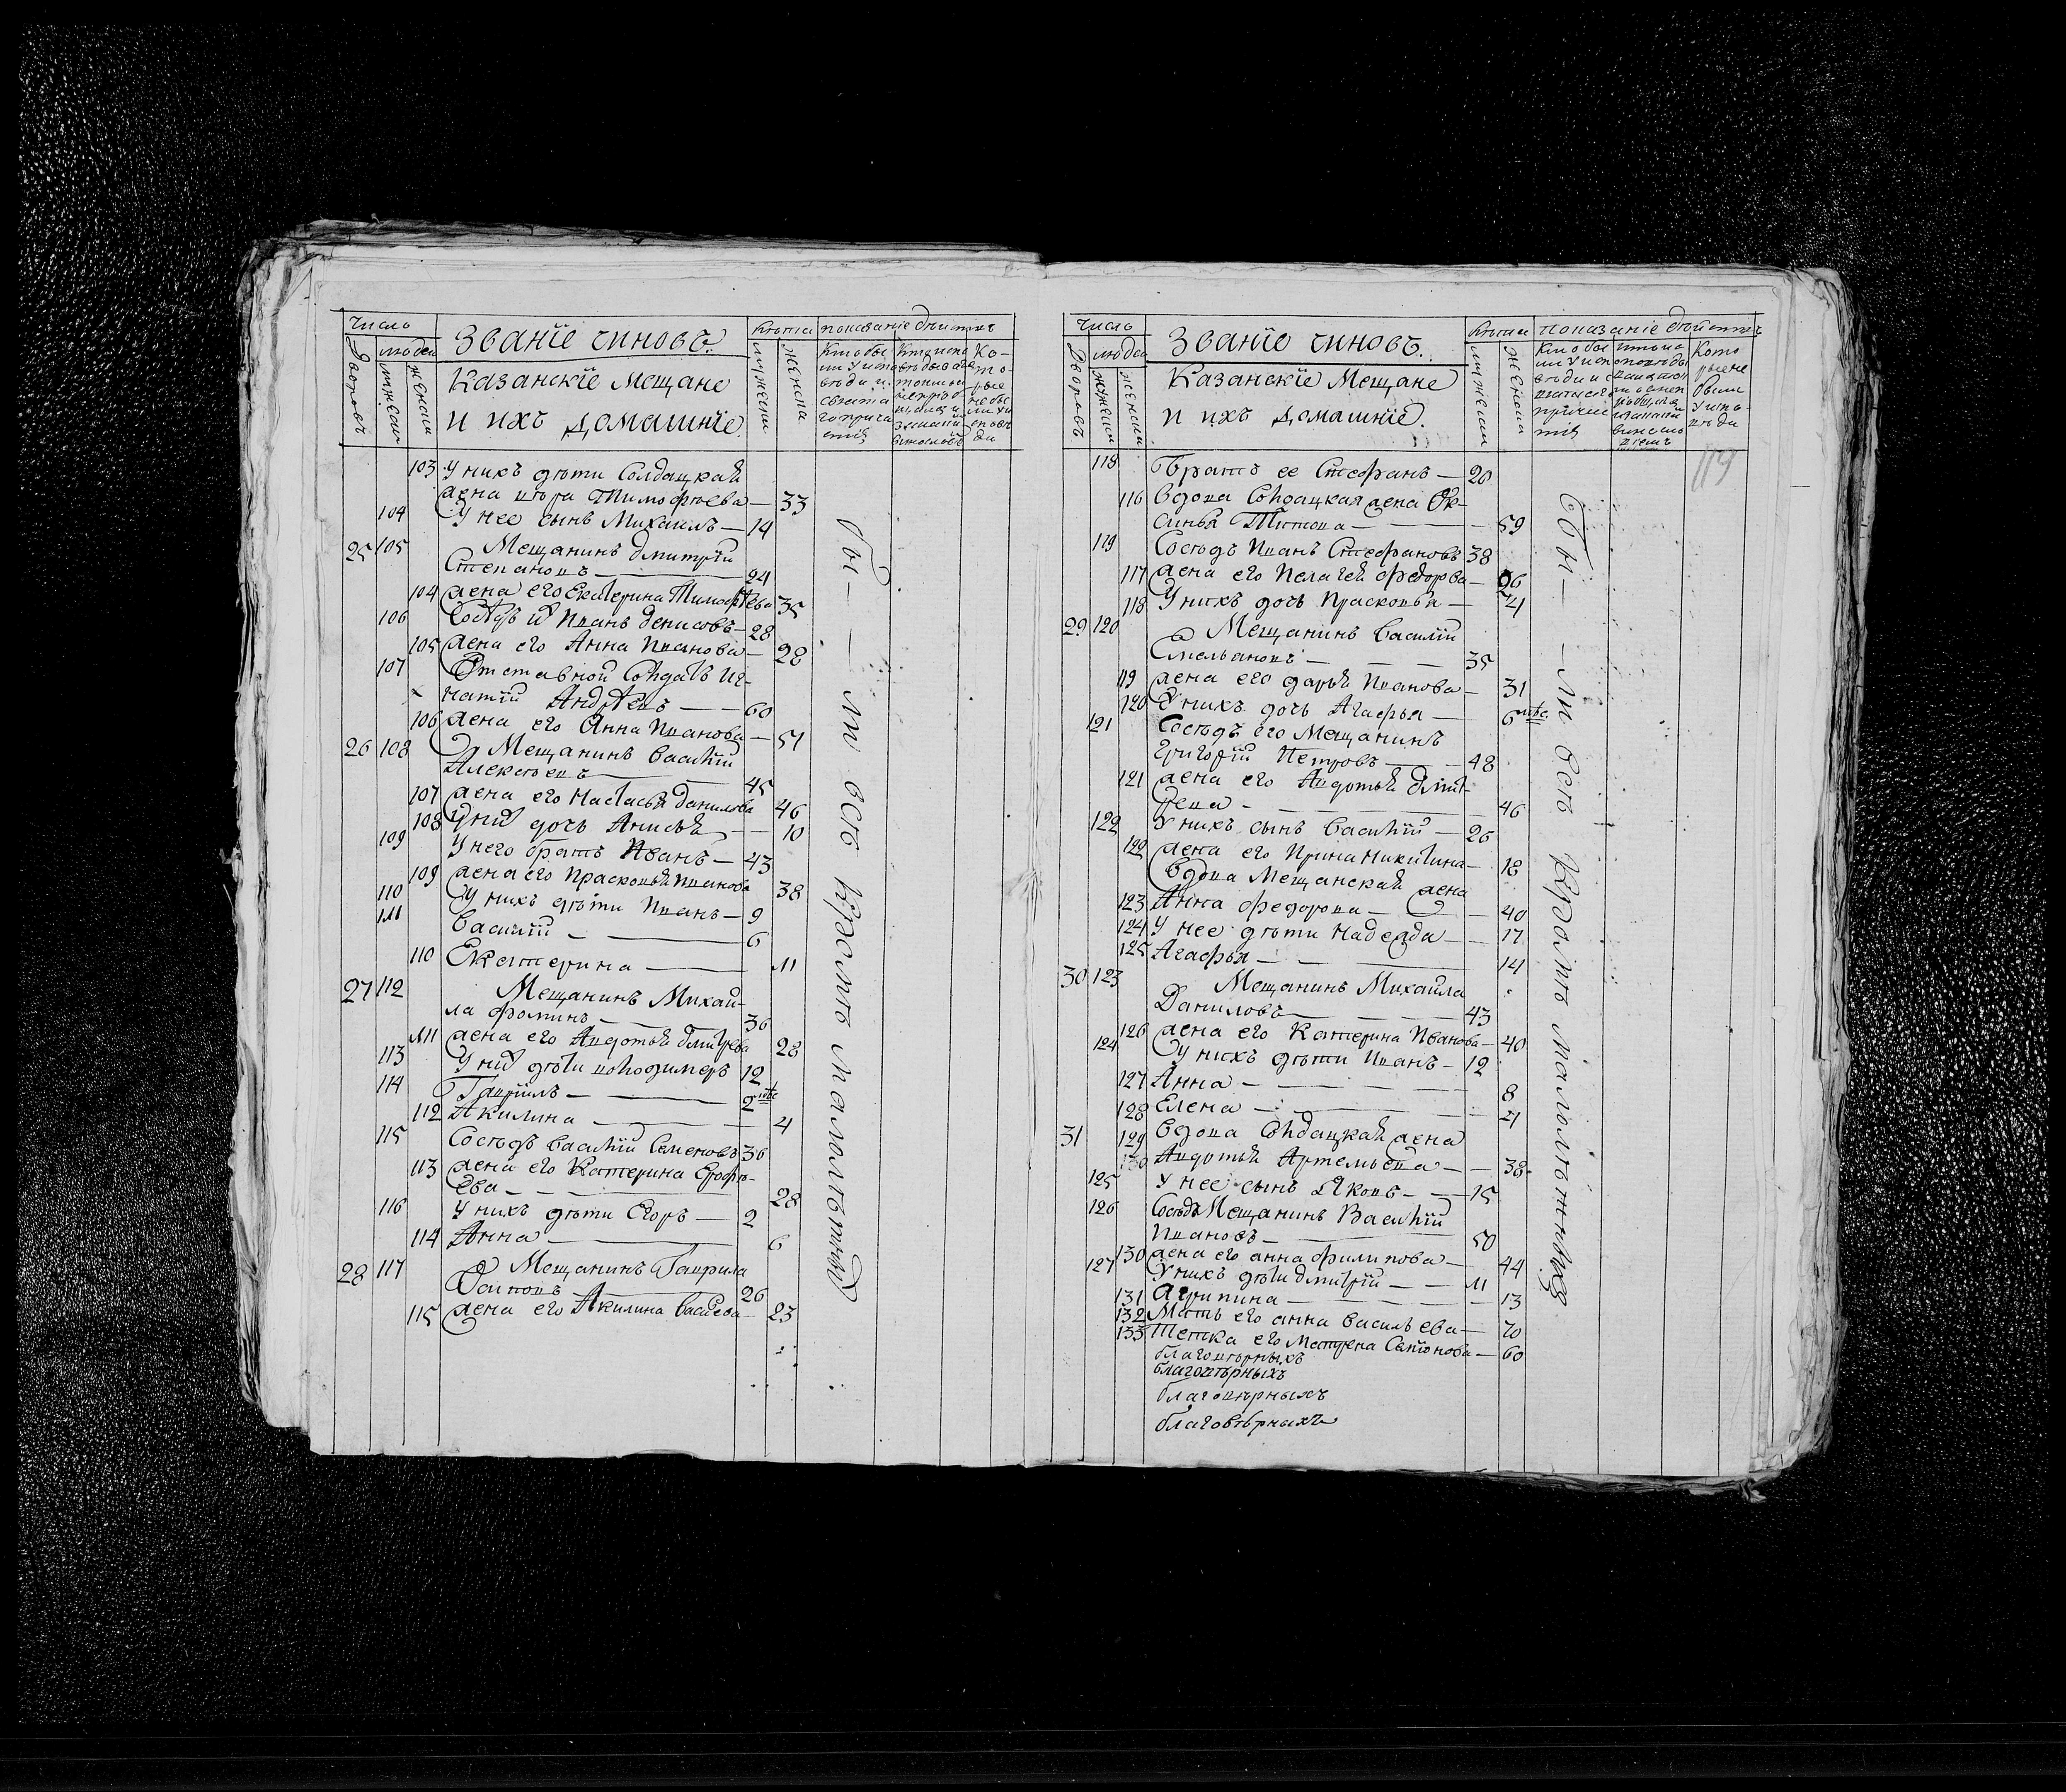 число
званїе чиновъ.
лѣта
показанїе дѣйств
дворовъ
людей
мужеска
женска
мужеска
женска
Казанскїе Мещане
и ихъ домашнїе.
103 У нихъ дѣти Солдацкая
жена вѣра Тимофѣева — 33
104 У нее сынъ Михаилъ — 14
25 105 Мещанинъ дмитрїй
Степановъ — 24
104 жена его Екатерина Тимофѣева 35
106 Сосѣдъ Иванъ денисовъ — 28
105 жена его Анна Иванова — 28
107 Отставной Солдатъ Иг-
натїй Андрѣевъ — 60
106 жена его Анна Иванова — 51
26 108 Мещанинъ Василїй
Алексѣевъ — 45
107 жена его Настасья данилова 46
108 У них дочь Анисья — 10
109 У него братъ Иванъ — 43
109 жена его Прасковья Иванова 38
110 У нихъ дѣти Иванъ — 9
111 Василїй — 6
110 Екатерина — 11
27 112 Мещанинъ Михай-
ла фоминъ — 36
111 жена его Авдотья дмитрева 28
113 У них дѣти володимеръ 12
114 Гаврїилъ — 2 мѣс
112 Акилина — 4
115 Сосѣдъ василїй Семеновъ 36
113 жена его Катерина Ерофѣ-
ева — 28
116 У нихъ дѣти Егоръ — 2
114 Анна — 6
28 117 Мещанинъ Гаврила
Осиповъ — 26
115 жена его Акилина Васильева — 23
бы — ли всѣ кромѣ малолѣтныхъ
число
званїе чиновъ.
лѣта
показанїе дѣйств
дворовъ
людей
мужеска
женска
мужеска
женска
Казанскїе Мещане
и ихъ домашнїе.
119
118 Братъ ее Стефанъ — 20
116 Вдова Солдацкая жена Ок-
синья Титова — 59
119 Сосѣдъ Иванъ Стефановъ 38
117 жена его Пелагея федорова — 26
118 У нихъ дочь Прасковья — 4
29 120 Мещанинъ Василїй
Емельяновъ — 35
119 жена его дарья Иванова — 31
120 У нихъ дочь Агафья — 6 мѣс
121 Сосѣдъ его Мещанинъ
Григорїй Петровъ — 48
121 жена его Авдотья дмит-
рева — 46
122 У нихъ сынъ Василїй — 26
122 жена его Ирина Никитина — 18
Вдова Мещанская жена
123 Анна федорова — 40
124 У нее дѣти Надежда — 17
125 Агафья — 14
30 123 Мещанинъ Михаила
Даниловъ — 43
126 жена его Катерина Иванова — 40
124 У нихъ дѣти Иванъ — 12
127 Анна — 8
128 Елена — 4
31 129 Вдова Солдацкая жена
130 Авдотья Артемьева — 38
125 У нее сынъ Яковъ — 15
126 Сосѣдъ Мещанинъ Василїй
Ивановъ — 50
130 жена его анна филипова — 44
127 У нихъ дѣти дмитрїй — 11
131 Агрипина — 13
132 Мать его анна васильева — 70
133 Тетка его Матрена Семїонова — 60
благовѣрныхъ
благовѣрныхъ
благовѣрныхъ
благовѣрныхъ
бы — ли всѣ кромѣ малолѣтныхъ